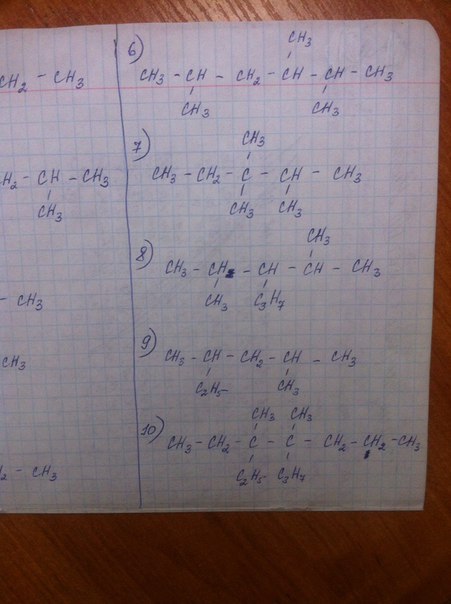 CH2 - CH3
H2 - CH - CH3
CH3
- CH3
CH3
2 - CH3
6)
CH3
CH3 - CH - CH2 - CH - CH - CH3
CH3 CH3
7)
CH3
CH3 - CH2 - C - CH - CH3
CH3 CH3
8)
CH3
CH3 - CH - CH - CH - CH3
CH3 C3H7
9)
CH3 - CH - CH2 - CH - CH3
C2H5 CH3
10)
CH3 CH3
CH3 - CH2 - C - C - CH2 - CH2 - CH3
C2H5 C3H7